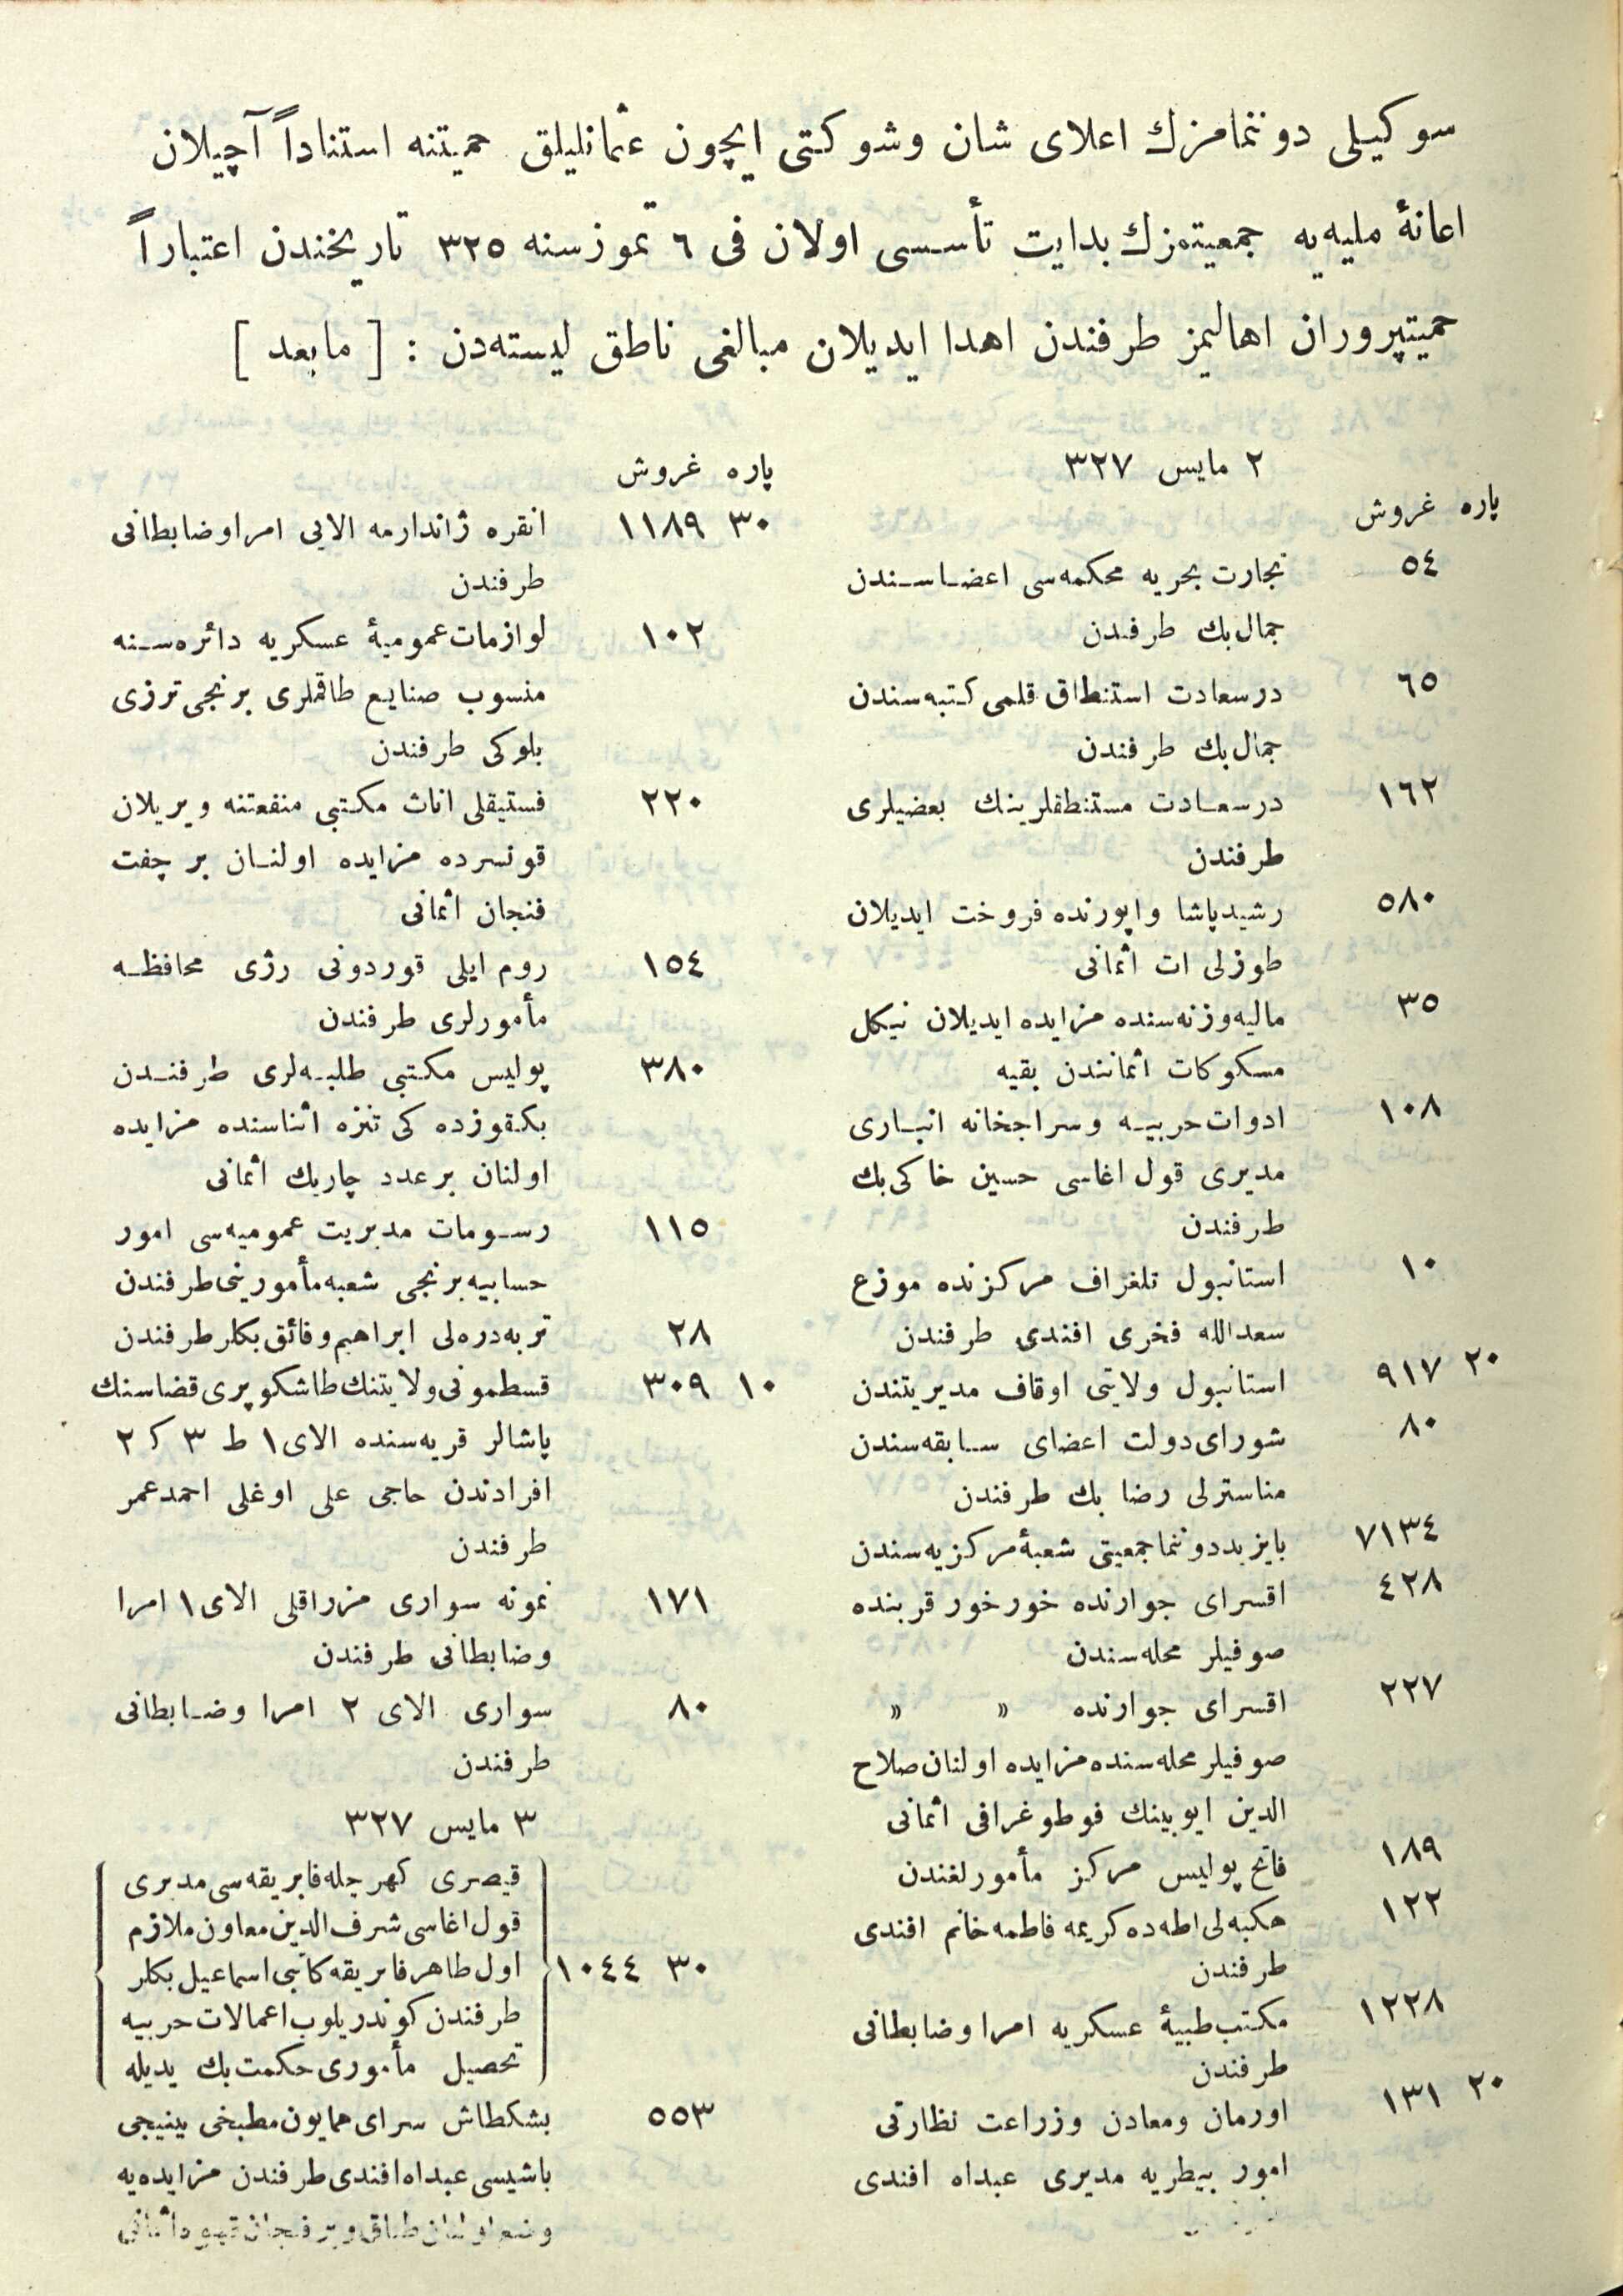 سوكیلی دوننمامزك اعلای شان وشوكتی ایچون عثمانلیلق حمیتنه استناداً آچیلان
اعانهٔ ملیه‌یه جمعیتمزك بدایت تأسسی اولان فی ٦ تموز سنه ٣٢٥ تاریخندن اعتباراً
حمیتپروران اهالیمز طرفندن اهدا ایدیلان مبالغی ناطق لیسته‌دن : [ مابعد ]
٢ مایس ٣٢٧
پاره غروش
٥٤ تجارت بحریه محكمه‌سی اعضاسندن
جمال بك طرفندن
٦٥ درسعادت استنطاق قلمی كتبه‌سندن
جمال بك طرفندن
١٦٢ درسعادت مستنطقلرینك بعضیلری
طرفندن
٥٨٠ رشیدپاشا واپورنده فروخت ایدیلان
طوزلی ات اثمانی
٣٥ مالیه وزنه‌سنده مزایده ایدیلان نیكل
مسكوكات اثمانندن بقیه
١٠٨ ادوات حربیه وسراجخانه انباری
مدیری قول اغاسی حسین خاكی بك
طرفندن
١٠ استانبول تلغراف مركزنده موزع
سعدالله فخری افندی طرفندن
٢٠ ٩١٧ استانبول ولایتی اوقاف مدیریتندن
٨٠ شورای دولت اعضای سابقه‌سندن
مناسترلی رضا بك طرفندن
٧١٣٤ بایزید دوننما جمعیتی شعبهٔ مركزیه‌سندن
٤٢٨ اقسرای جوارنده خورخور قربنده
صوفیلر محله‌سندن
٢٢٧ اقسرای جوارنده « «
صوفیلر محله‌سنده مزایده اولنان صلاح
الدین ایوبینك فوطوغرافی اثمانی
١٨٩ فاتح پولیس مركز مأمورلغندن
١٢٢ هكبه‌لی اطه‌ده كریمه فاطمه خانم افندی
طرفندن
١٢٢٨ مكتب طبیهٔ عسكریه امرا وضابطانی
طرفندن
٢٠ ١٣١ اورمان ومعادن وزراعت نظارتی
امور بیطریه مدیری عبداه افندی
پاره غروش
٣٠ ١١٨٩ انقره ژاندارمه الایی امرا وضابطانی
طرفندن
١٠٢ لوازمات عمومیهٔ عسكریه دائره‌سنه
منسوب صنایع طاقملری برنجی ترزی
بلوكی طرفندن
٢٢٠ فستیقلی اناث مكتبی منفعتنه ویریلان
قونسرده مزایده اولنان بر چفت
فنجان اثمانی
١٥٤ روم ایلی قوردونی رژی محافظه
مأمورلری طرفندن
٣٨٠ پولیس مكتبی طلبه‌لری طرفندن
بكقوزده كی تنزه اثناسنده مزایده
اولنان بر عدد چاریك اثمانی
١١٥ رسومات مدیریت عمومیه‌سی امور
حسابیه برنجی شعبه مأمورینی طرفندن
٢٨ تربه‌دره‌لی ابراهیم وفائق بكلر طرفندن
١٠ ٣٠٩ قسطمونی ولایتنك طاشكوپری قضاسنك
پاشالر قریه‌سنده الای ١ ط ٣ ك ٢
افرادندن حاجی علی اوغلی احمد عمر
طرفندن
١٧١ نمونه سواری مزراقلی الای ١ امرا
وضابطانی طرفندن
٨٠ سواری الای ٢ امرا وضابطانی
طرفندن
٣ مایس ٣٢٧
قیصری كهرچله فابریقه‌سی مدیری
قول اغاسی شرف الدین معاون ملازم
٣٠ ١٠٤٤ اول طاهر فابریقه كاتبی اسماعیل بكلر
طرفندن كوندریلوب اعمالات حربیه
تحصیل مأموری حكمت بك یدیله
٥٥٣ بشكطاش سرای همایون مطبخی یینیجی
باشیسی عبداه افندی طرفندن مزایده‌یه
وضع اولنان طباق وبر فنجان قهوه اثمانی